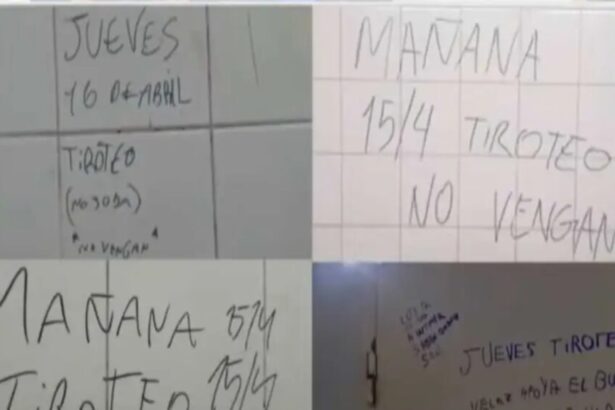 JUEVES
16 DE ABRIL
TIROTEO
(NO JODA)
*NO VENGAN*
MAÑANA
15/4 TIROTEO
NO VENGAN
MAÑANA 15/4
TIROTEO 15/4
JUEVES TIROTE
EL BU